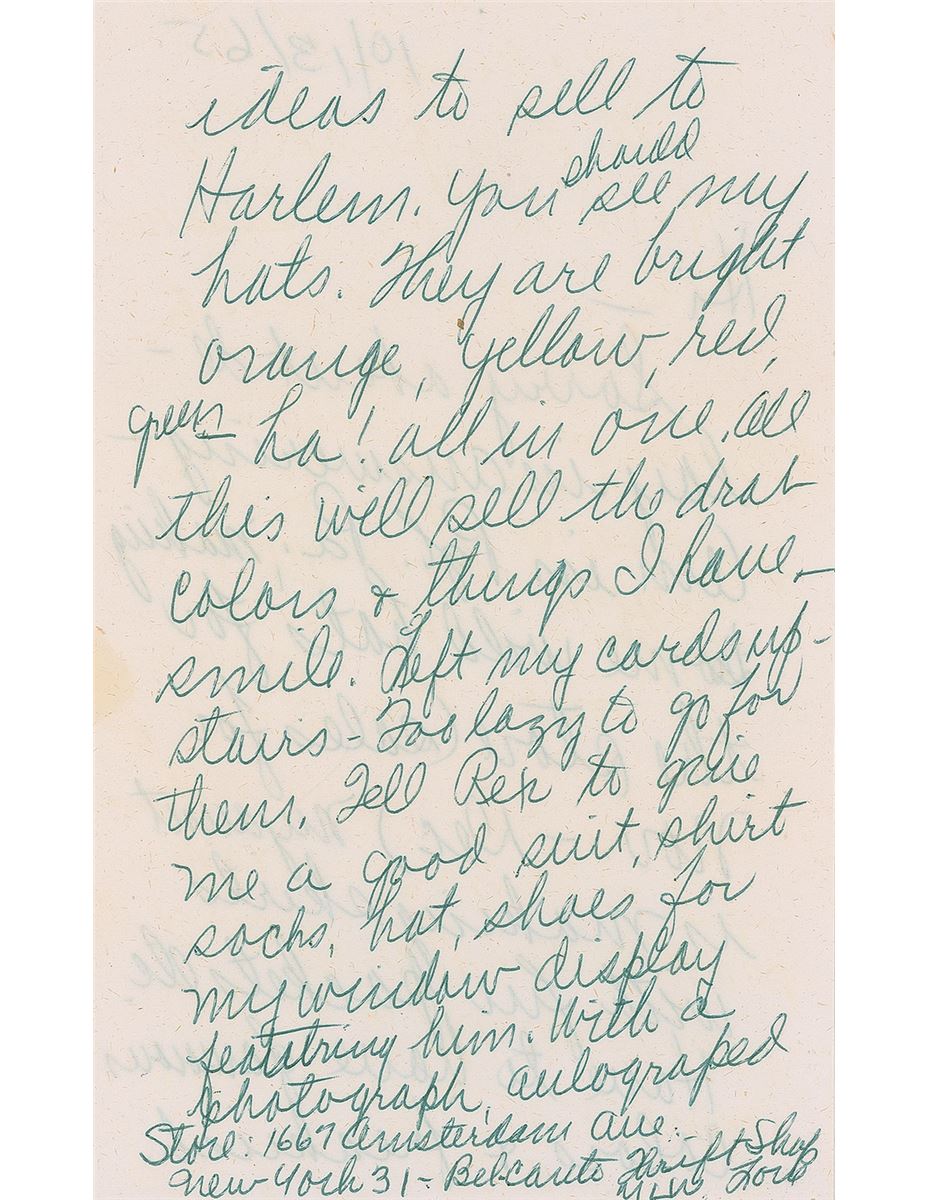 ideas to sell to
Harlem. You should see my
hats. They are bright
orange, yellow, red,
green ha! all in one. All
this will sell the drab
colors & things I have –
smile. Left my cards up-
stairs – Too lazy to go for
them. Tell Rex to give
me a good suit, shirt
socks, hat, shoes for
my window display
featuring him. With a
photograph, autograped
Store: 1667 Amsterdam Ave. –
New York 31 – Belcanto Thrift Shop